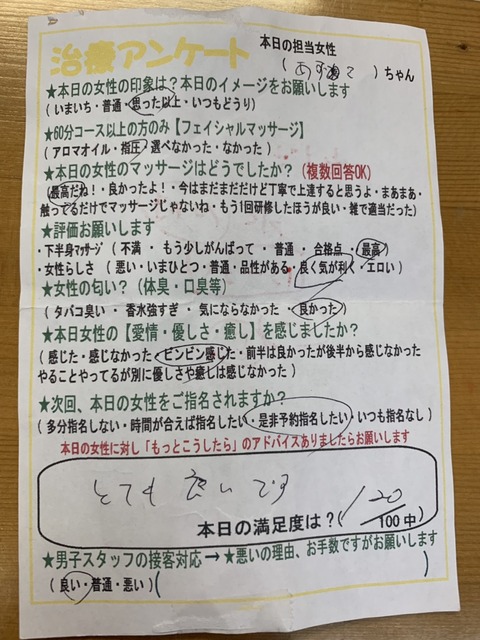 治療アンケート
本日の担当女性
( )ちゃん
★本日の女性の印象は?本日のイメージをお願いします
(いまいち・普通・思った以上・いつもどうり)
★60分コース以上の方のみ【フェイシャルマッサージ】
(アロマオイル・指圧・選べなかった・なかった)
★本日の女性のマッサージはどうでしたか?(複数回答OK)
(最高だね!・良かったよ!・今はまだまだだけど丁寧で上達すると思うよ・まあまあ・
触ってるだけでマッサージじゃないね・もう1回研修したほうが良い・雑で適当だった)
★評価お願いします
・下半身マッサージ(不満・もう少しがんばって・普通・合格点・最高)
・女性らしさ(悪い・いまひとつ・普通・品性がある・良く気が利く・エロい)
★女性の匂い?(体臭・口臭等)
(タバコ臭い・香水強すぎ・気にならなかった・良かった)
★本日女性の【愛情・優しさ・癒し】を感じましたか?
(感じた・感じなかった・ビンビン感じた・前半は良かったが後半から感じなかった
やることやってるが別に優しさや癒しは感じなかった)
★次回、本日の女性をご指名されますか?
(多分指名しない・時間が合えば指名したい・是非予約指名したい・いつも指名なし)
本日の女性に対し「もっとこうしたら」のアドバイスありましたらお願いします
とても良いです
本日の満足度は?(120/100中)
★男子スタッフの接客対応→★悪いの理由、お手数ですがお願いします
(良い・普通・悪い)( )